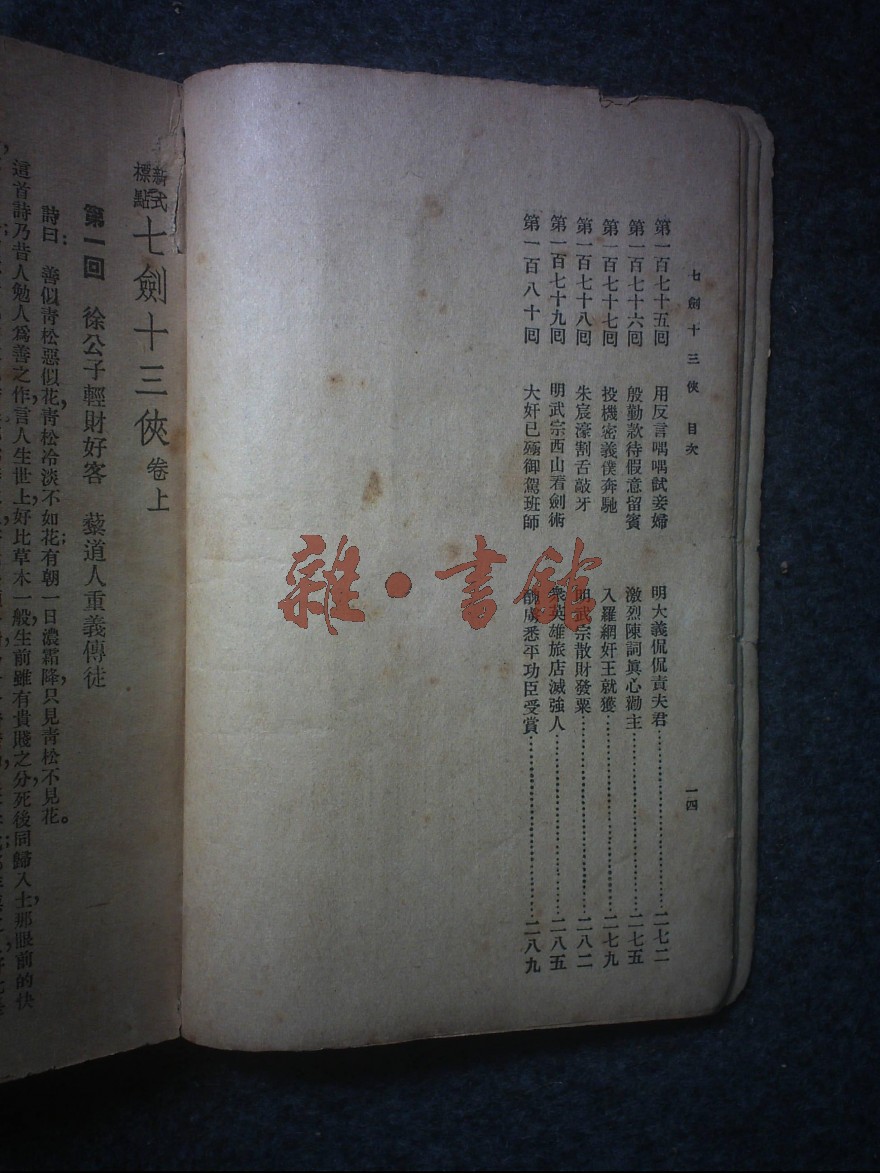 七劍十三俠 目次 一四
第一百七十五回 用反言喁喁試妾婦 明大義侃侃責夫君 二七二
第一百七十六回 殷勤款待假意留賓 激烈陳詞眞心勸主 二七五
第一百七十七回 投機密義僕奔馳 入羅網奸王就獲 二七九
第一百七十八回 朱宸濠割舌敲牙 明武宗散財發粟 二八二
第一百七十九回 明武宗西山看劍術 衆英雄旅店滅強人 二八五
第一百八十回 大奸已殛御駕班師 醜虜悉平功臣受賞 二八九
雜·書館
新式標點 七劍十三俠 卷上
第一回 徐公子輕財好客 藜道人重義傳徒
詩曰: 善似靑松惡似花,靑松冷淡不如花;有朝一日濃霜降,只見靑松不見花。
這首詩乃昔人勉人爲善之作,言人生世上,好比草木一般,生前雖有貴賤之分,死後同歸入土;那眼前的快